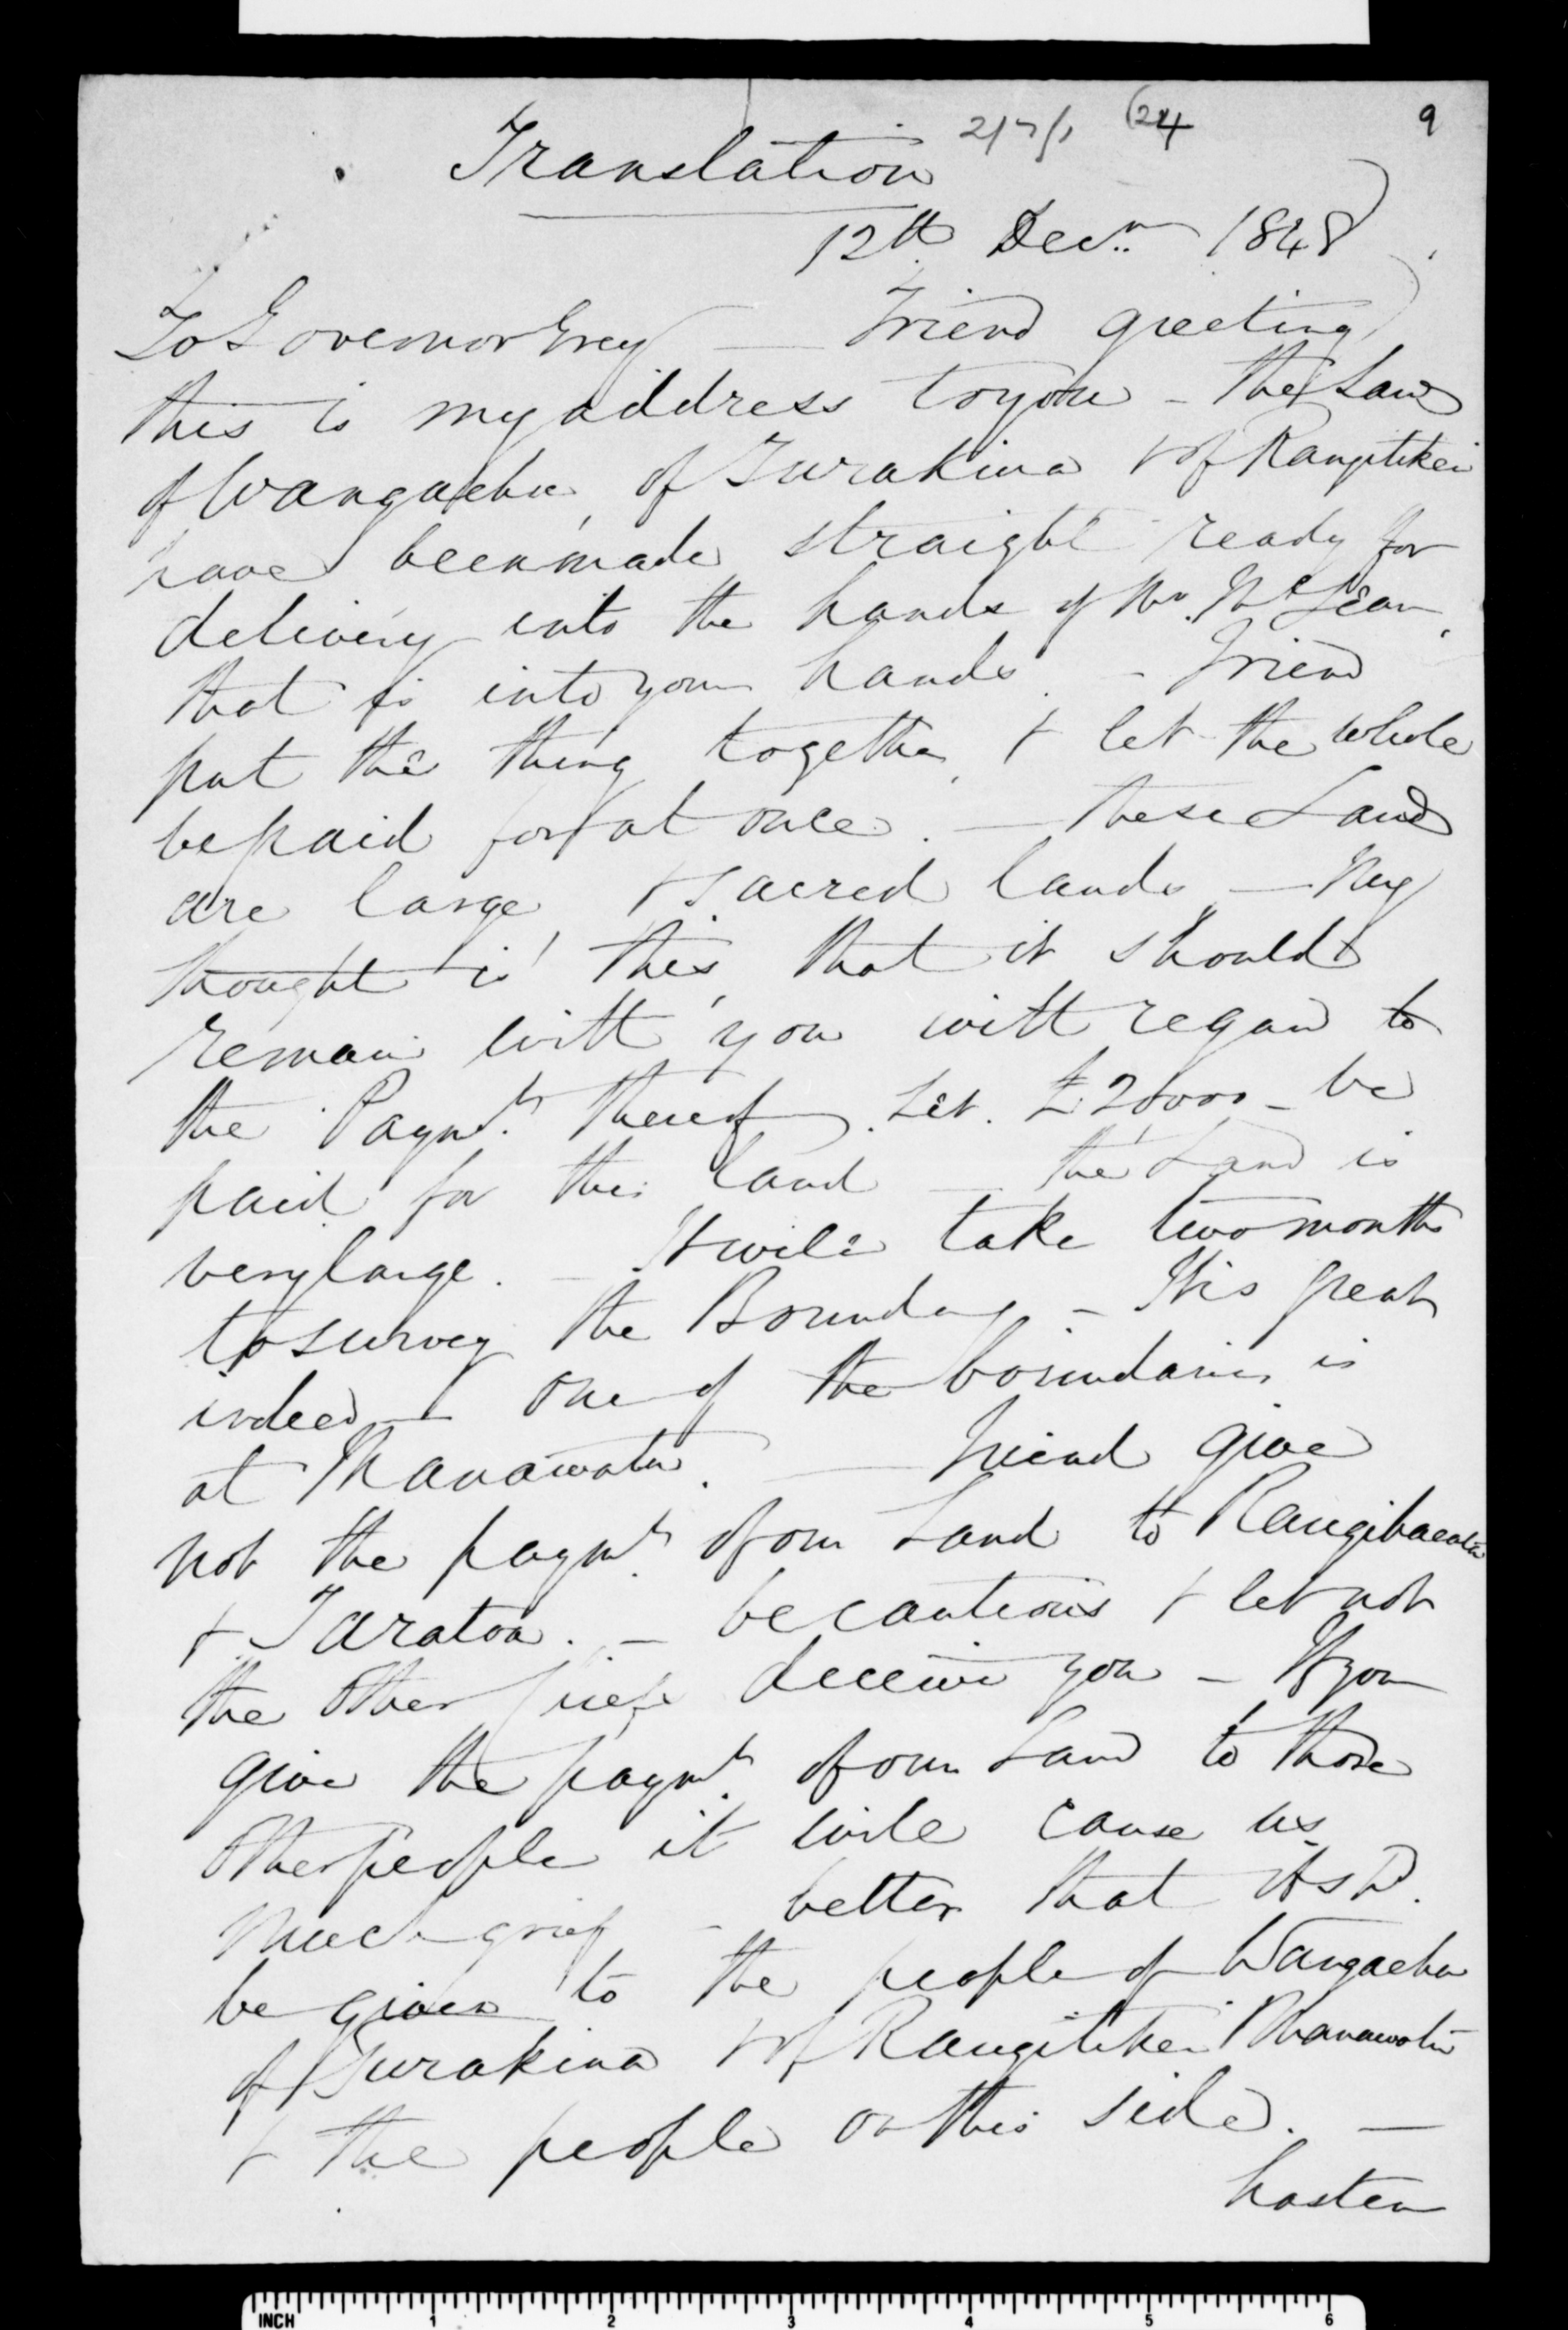 Translation 217/1 (24 9
12th Decr. 1848
To Governor Grey — Friend greeting
this is my address to you - the Land
of Wangaehu, of Turakina & of Rangitikei
have been made straight ready for
delivery into the hands of Mr. McLean,
that is into your hands. - Friend
put the thing together, & let the whole
be paid for at once. — these Land
are large, & sacred lands — My
thought is this, that it should
remain with you with regard to
the Paymt. thereof. Let. £20000 - be
paid for this land — the Land is
very large. - It will take two months
to survey the Boundary - It is great
indeed — One of the boundaries is
at Manawatu. — Friend give
not the paymt. of our Land to Rangihaeata
& Taratoa. - be cautious & let not
the other side deceive you - If you
give the paymt. of our Land to those
Other people it will cause us
Much grief - better that it shd.
be given to the people of Wangaehu
of Turakina & of Rangitikei Manawatu
& the people on this side. —
hasten
INCH 1 2 3 4 5 6